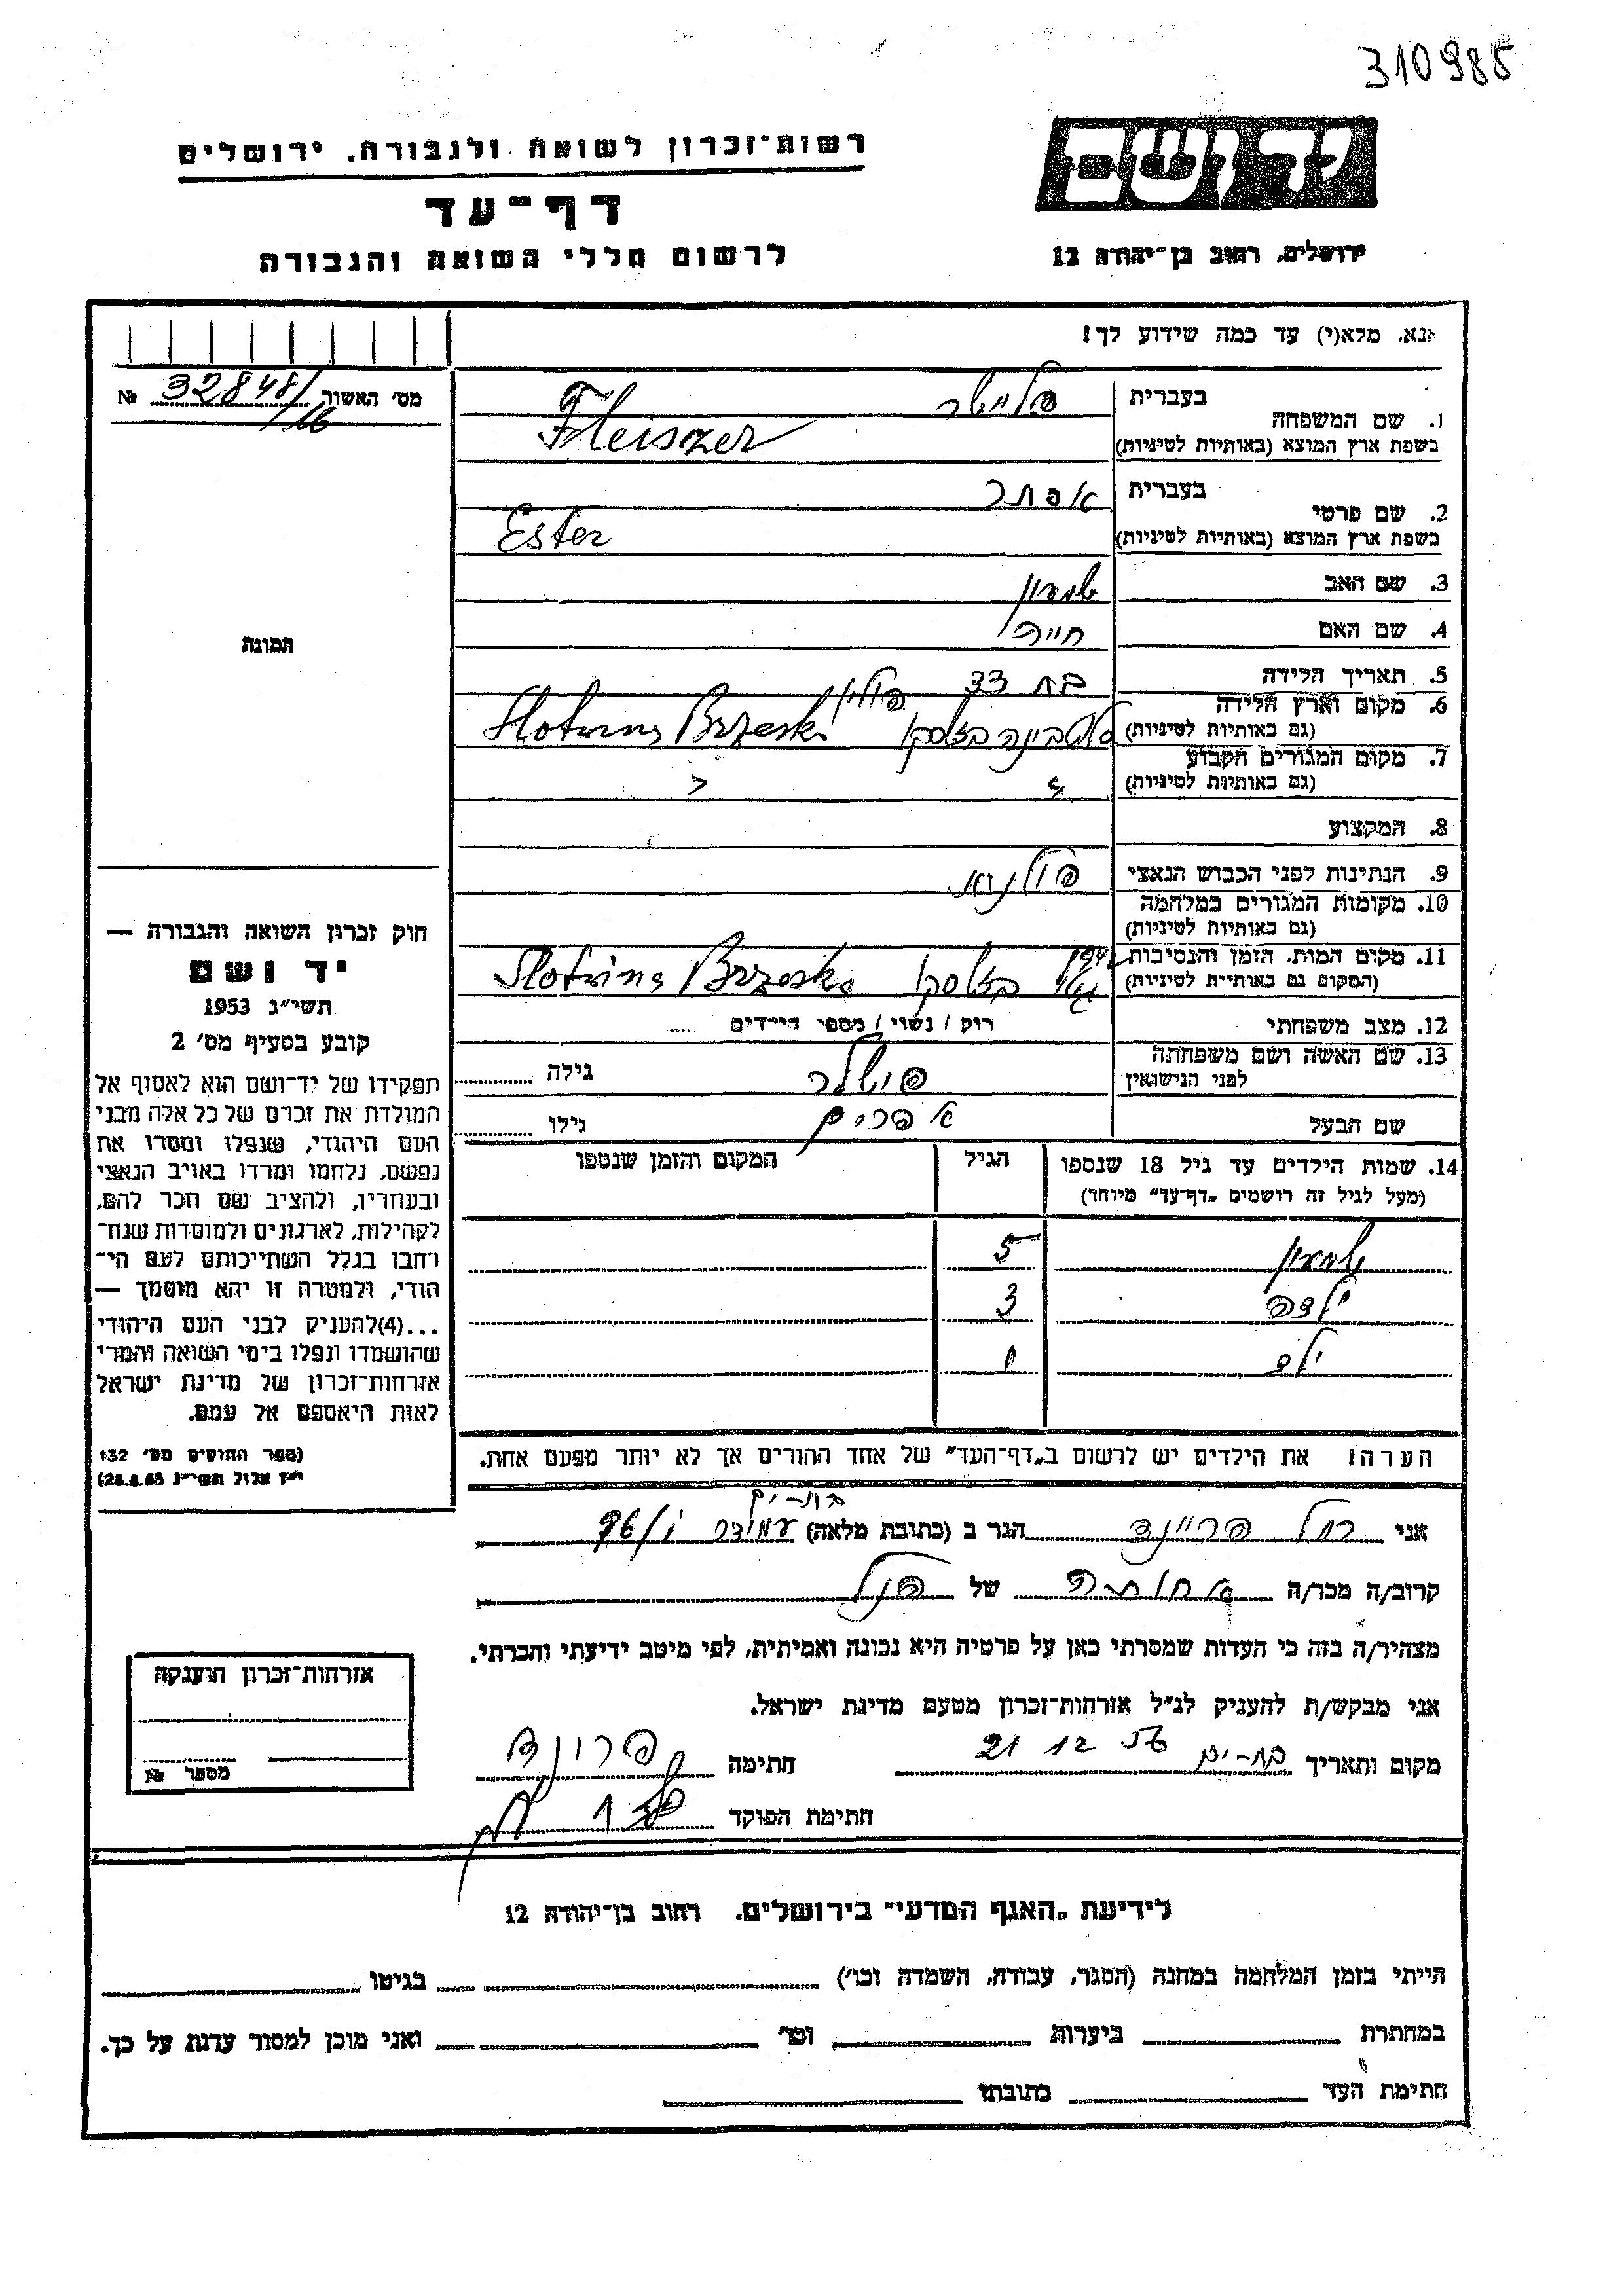 310985
יד ושם
ירושלים, רחוב בן־יהודה 12
רשות־זכרון לשואה ולגבורה, ירושלים
דף־עד
לרשום חללי השואה והגבורה
אנא, מלא(י) עד כמה שידוע לך!
מס' האשור 32848/16 №
תמונה
1. שם המשפחה
בעברית פליישר
בשפת ארץ המוצא (באותיות לטיניות) Fleiszer
2. שם פרטי
בעברית אסתר
בשפת ארץ המוצא (באותיות לטיניות) Ester
3. שם האב שמעון
4. שם האם חייה
5. תאריך הלידה בת 33
6. מקום וארץ הלידה פולין
(גם באותיות לטיניות) בז'סקו Brzesko
7. מקום המגורים הקבוע
(גם באותיות לטיניות) " "
8. המקצוע
9. הנתינות לפני הכבוש הנאצי פולנית
10. מקומות המגורים במלחמה
(גם באותיות לטיניות)
11. מקום המות, הזמן והנסיבות 1942
(המקום גם באותיות לטיניות) בז'סקו Brzesko
12. מצב משפחתי רווק / נשוי / מספר הילדים .....
13. שם האשה ושם משפחתה
לפני הנישואין גילה
שם הבעל אפרים גילו
14. שמות הילדים עד גיל 18 שנספו הגיל המקום והזמן שנספו
(מעל לגיל זה רושמים „דף־עד" מיוחד)
שמעון 5
ילדה 3
ילד 1
הערה: את הילדים יש לרשום ב„דף־העד" של אחד ההורים אך לא יותר מפעם אחת.
חוק זכרון השואה והגבורה —
יד ושם
תשי"ג 1953
קובע בסעיף מס' 2
תפקידו של יד־ושם הוא לאסוף אל
המולדת את זכרם של כל אלה מבני
העם היהודי, שנפלו ומסרו את
נפשם, נלחמו ומרדו באויב הנאצי
ובעוזריו, ולהציב שם וזכר להם,
לקהילות, לארגונים ולמוסדות שנח־
רבו בגלל השתייכותם לעם הי־
הודי, ולמטרה זו יהא מוסמך —
...(4)להעניק לבני העם היהודי
שהושמדו ונפלו בימי השואה והמרי
אזרחות־זכרון של מדינת ישראל
לאות היאספם אל עמם.
(ספר החוקים מס' 132
י"ז אלול תשי"ג 28.8.53)
בת־ים
אני רחל פריינד הגר ב (כתובת מלאה) 96/
קרוב/ה מכר/ה אחותה של הנ"ל
מצהיר/ה בזה כי העדות שמסרתי כאן על פרטיה היא נכונה ואמיתית, לפי מיטב ידיעתי והכרתי.
אני מבקש/ת להעניק לנ"ל אזרחות־זכרון מטעם מדינת ישראל.
מקום ותאריך בת־ים 21 12 חתימה
חתימת הפוקד
אזרחות־זכרון הוענקה
מספר №
לידיעת „האגף המדעי" בירושלים, רחוב בן־יהודה 12
הייתי בזמן המלחמה במחנה (הסגר, עבודה, השמדה וכו') בגיטו
במחתרת ביערות וכו' ואני מוכן למסור עדות על כך.
חתימת העד כתובתו